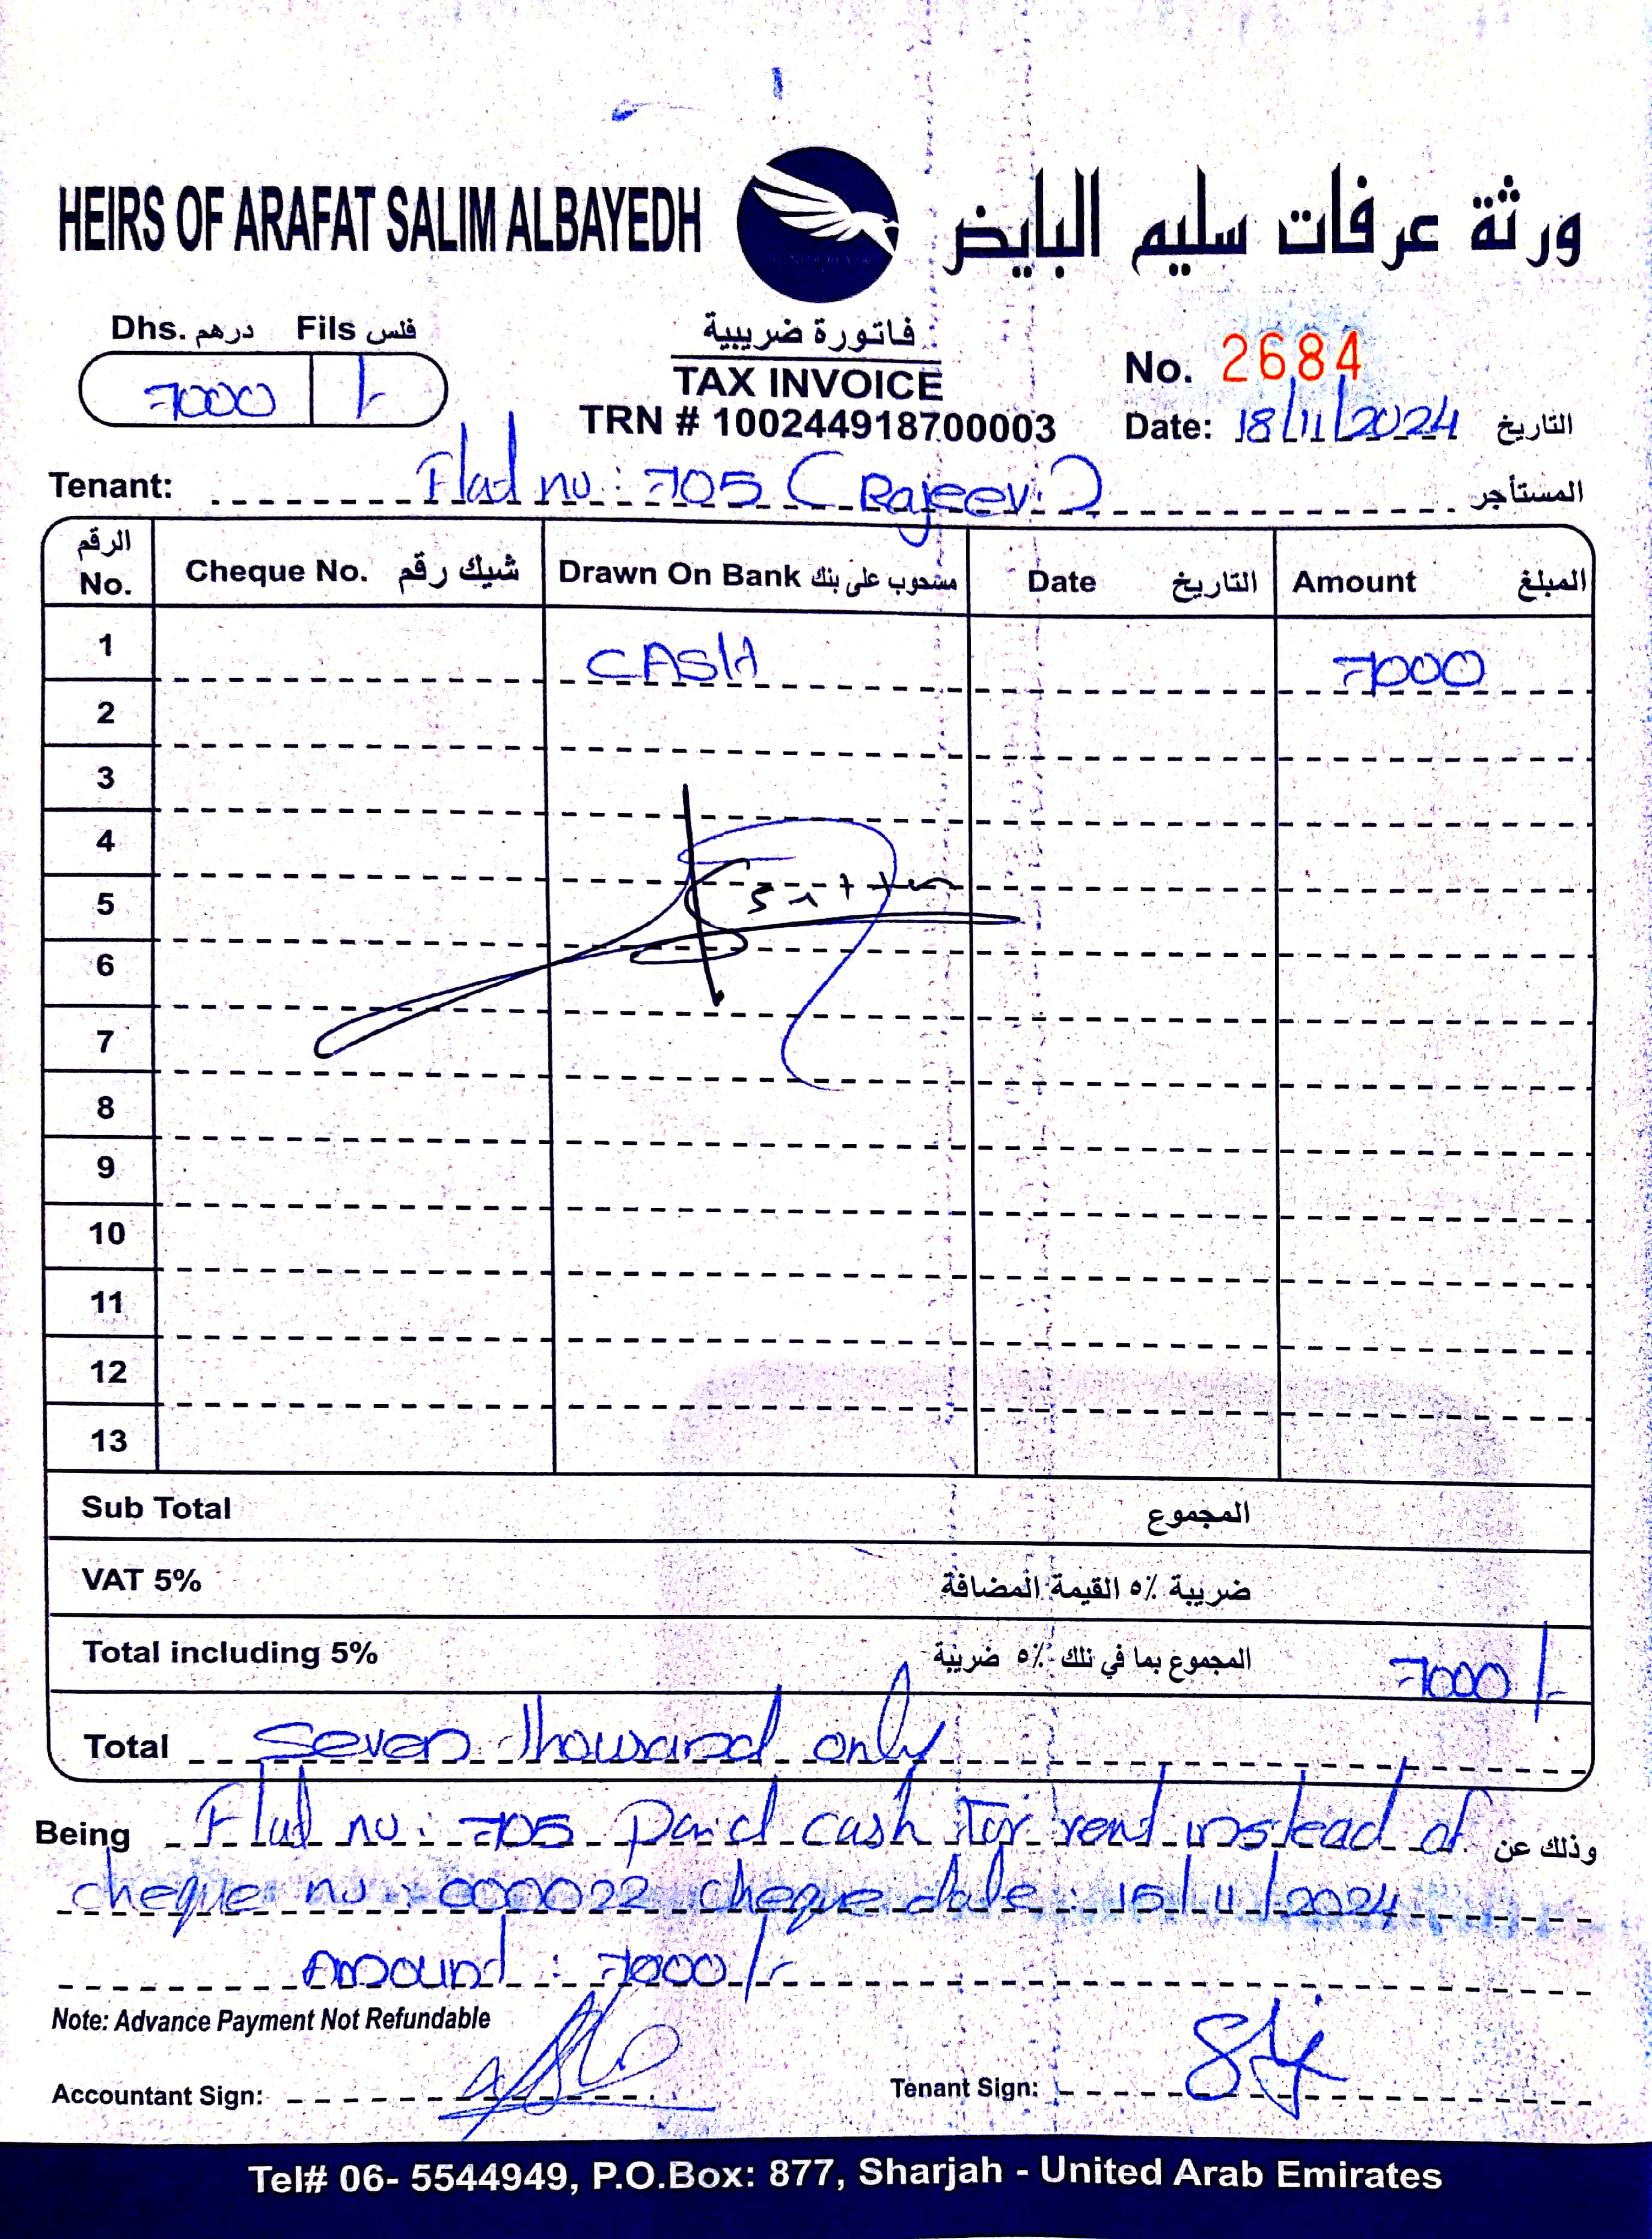 HEIRS OF ARAFAT SALIM ALBAYEDH
ورثة عرفات سليم البايض
Dhs. درهم Fils فلس
7000 /-
فاتورة ضريبية
TAX INVOICE
TRN # 100244918700003
No. 2684
Date: 18/11/2024 التاريخ
Tenant: Flat no: 705 (Rajeev) المستأجر
الرقم No. Cheque No. شيك رقم Drawn On Bank مسحوب على بنك Date التاريخ Amount المبلغ
1 CASH 7000
2
3
4
5
6
7
8
9
10
11
12
13
Sub Total المجموع
VAT 5% ضريبة ٥٪ القيمة المضافة
Total including 5% المجموع بما في ذلك ٥٪ ضريبة 7000/-
Total Seven thousand only
Being Flat no: 705 paid cash for rent instead of وذلك عن
cheque no: 000022 cheque date: 15/11/2024
Amount: 7000/-
Note: Advance Payment Not Refundable
Accountant Sign: Tenant Sign:
Tel# 06- 5544949, P.O.Box: 877, Sharjah - United Arab Emirates